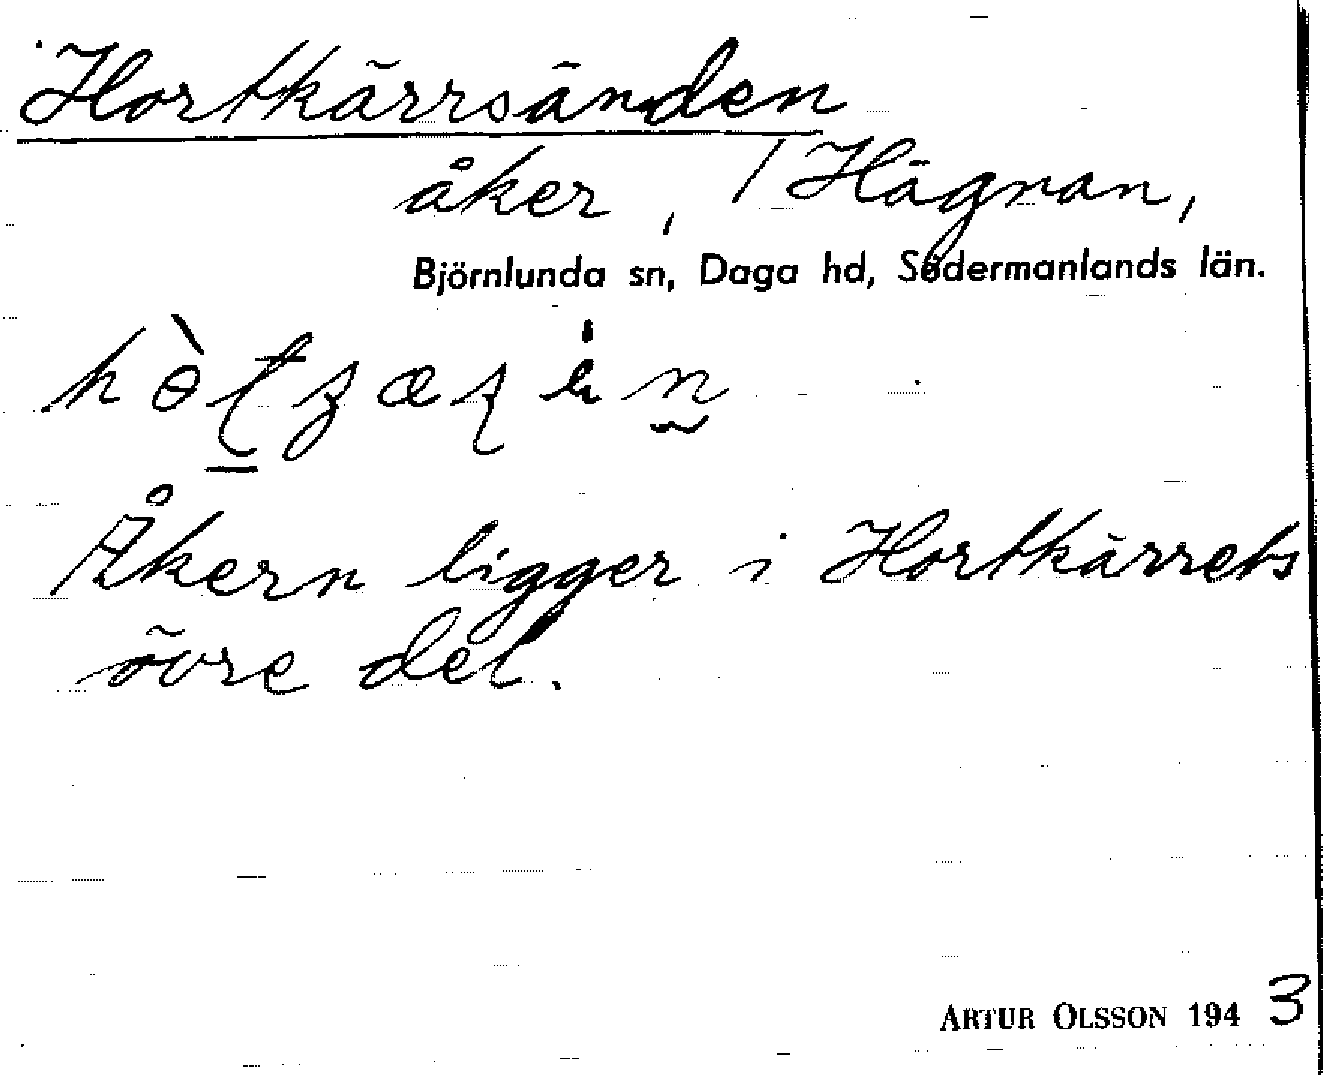 Hortkärrsänden
åker, / Hägnan,
Björnlunda sn, Daga hd, Södermanlands län.
Åkern ligger i Hortkärrets
övre del.
ARTUR OLSSON 1943